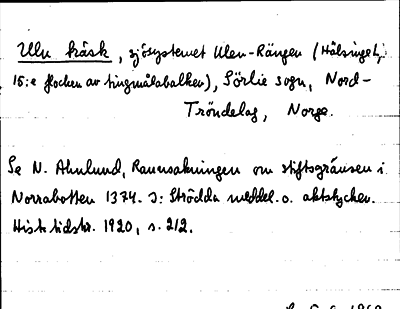 Ulu träsk, sjösystemet Ulen-Rängen (Hälsingel,
15:e flocken av tingmålabalken), Sörlie sogn, Nord-
Tröndelag, Norge.
Se N. Ahnlund, Rannsakningen om stiftsgränsen i
Norrabotten 1374. I: Strödda meddel. o. aktstycken.
Hist. tidskr. 1920, s. 212.